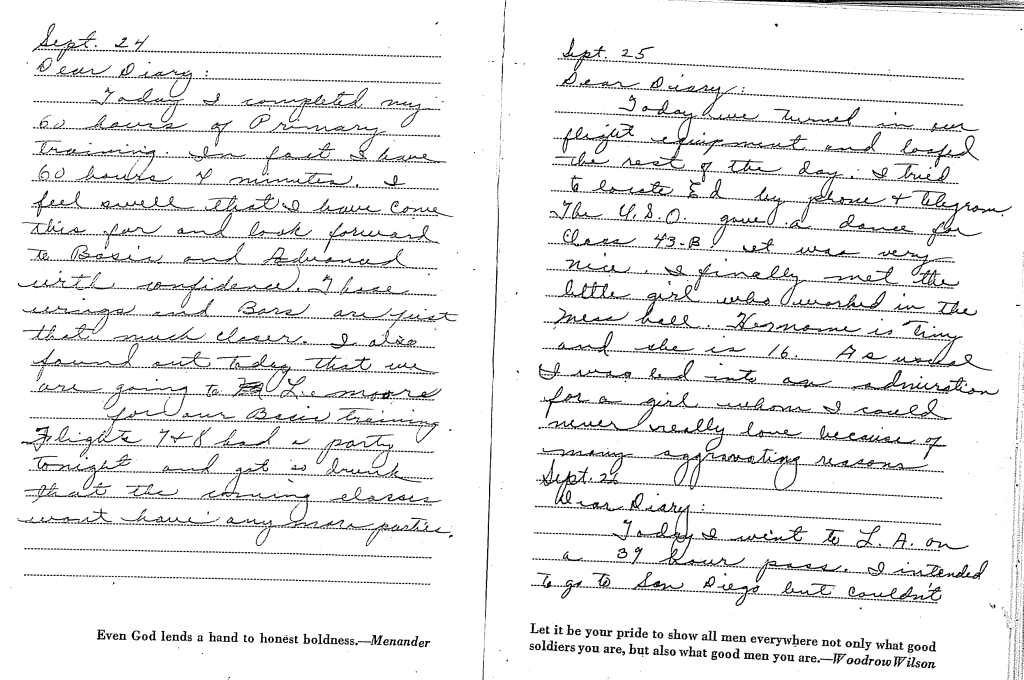 Sept. 24
Dear Diary:
Today I completed my
60 hours of Primary
Training. In fact I have
60 hours 4 minutes. I
feel swell that I have come
this far and look forward
to Basic and Advanced
with confidence. Those
wings and Bars are just
that much closer. I also
found out today that we
are going to Lemoore
for our Basic training.
Flights 7+8 had a party
tonight and got so drunk
that the coming classes
wont have any more parties.
Even God lends a hand to honest boldness.—Menander
Sept. 25
Dear Diary:
Today we turned in our
flight equipment and loafed
the rest of the day. I tried
to locate Ed by phone + telegram.
The U.S.O. gave a dance for
Class 43-B it was very
nice. I finally met the
little girl who worked in the
mess hall. Her name is Tiny
and she is 16. As usual
I was led into an admiration
for a girl whom I could
never really love because of
many aggravating reasons
Sept. 26
Dear Diary:
Today I went to L.A. on
a 39 hour pass. I intended
to go to San Diego but couldn't
Let it be your pride to show all men everywhere not only what good
soldiers you are, but also what good men you are.—Woodrow Wilson